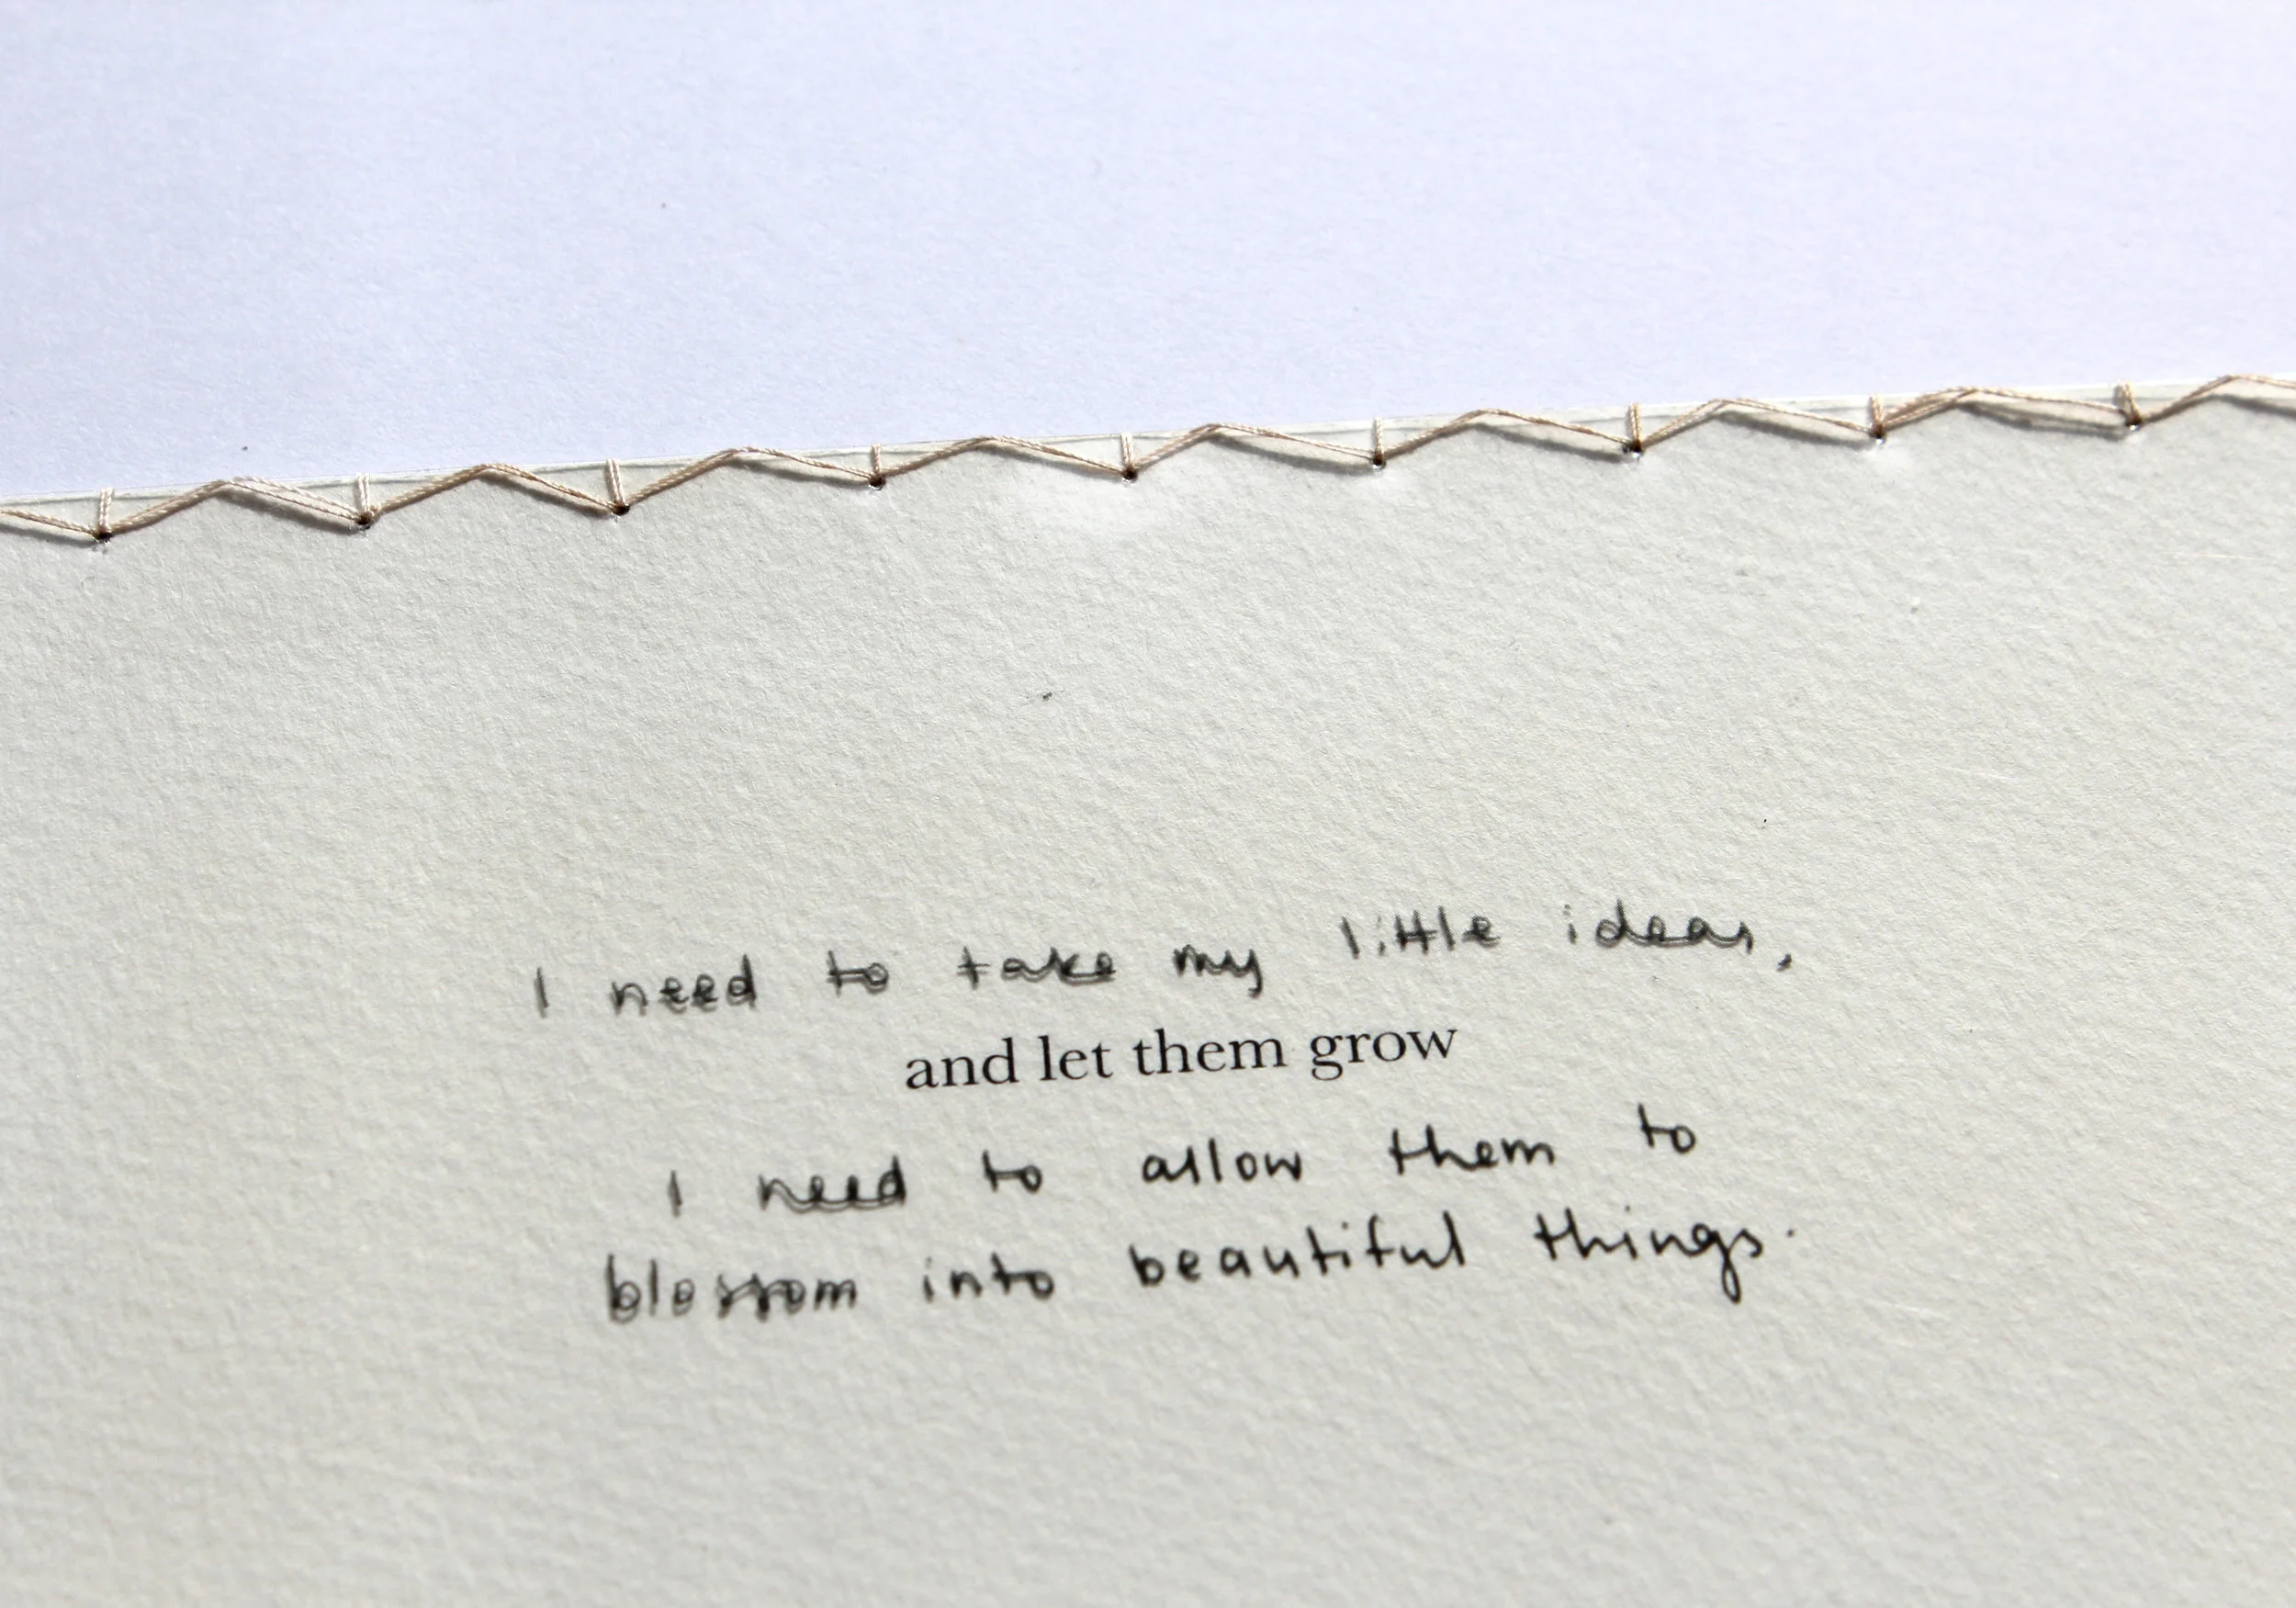 I need to take my little ideas,
and let them grow
I need to allow them to
blossom into beautiful things.